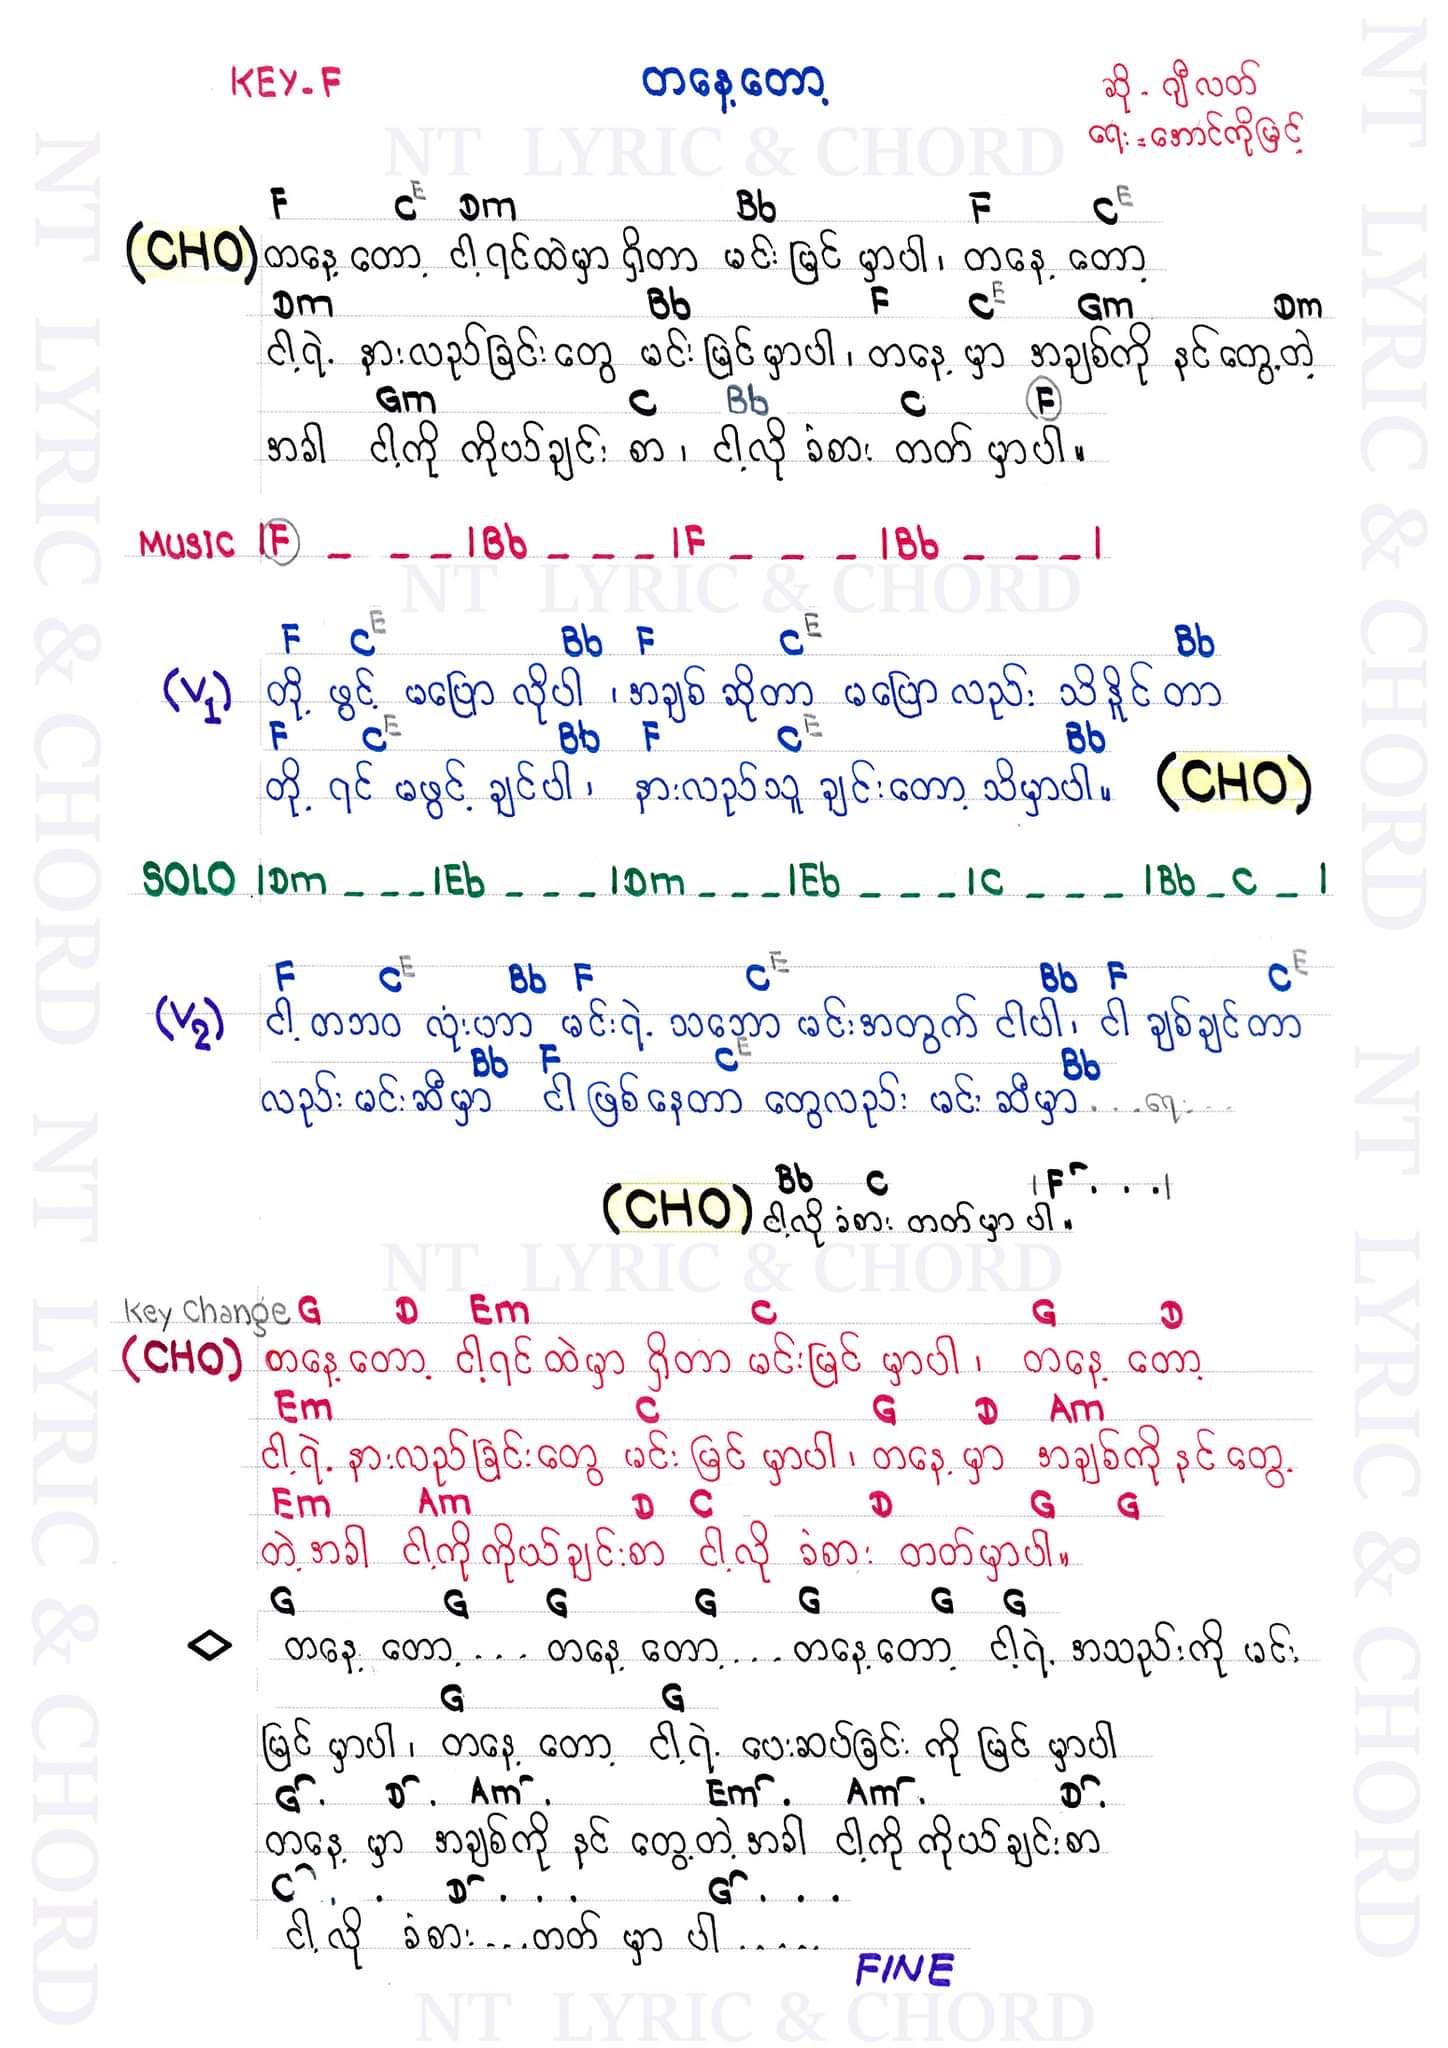 KEY-F
တနေ့တော့
ဆို - ဂျီလတ်
ရေး - အောင်ကိုမြင့်
NT LYRIC & CHORD
F C E Dm Bb F C E
(CHO) တနေ့ တော့ ငါ့ရင်ထဲမှာ ရှိတာ မင်း မြင် မှာပါ ၊ တနေ့ တော့
Dm Bb F C E Gm Dm
ငါ့ရဲ့ နားလည်ခြင်းတွေ မင်း မြင်မှာပါ ၊ တနေ့ မှာ အချစ်ကို နင် တွေ့တဲ့
Gm C Bb C F
အခါ ငါ့ကို ကိုယ်ချင်း စာ ၊ ငါ့လို ခံစား တတ် မှာပါ ။
MUSIC |F _ _ _ |Bb _ _ _ |F _ _ _ |Bb _ _ _ |
NT LYRIC & CHORD
F C E Bb F C E Bb
(V1) တို့ ဖွင့် မပြော လိုပါ ၊ အချစ် ဆိုတာ မပြော လည်း သိနိူင် တာ
F C E Bb F C E Bb
တို့ ရင် မဖွင့် ချင်ပါ ၊ နားလည်သူ ချင်းတော့ သိမှာပါ ။ (CHO)
SOLO |Dm _ _ _ |Eb _ _ _ |Dm _ _ _ |Eb _ _ _ |C _ _ _ |Bb _ C _ |
F C E Bb F C E Bb F C E
(V2) ငါ့ တဘဝ လုံးပာာ မင်းရဲ့ သဘော မင်းအတွက် ငါပါ ၊ ငါ ချစ်ချင်တာ
Bb F C E Bb
လည်း မင်းဆီမှာ ငါ ဖြစ်နေတာ တွေလည်း မင်း ဆီမှာ . . . ရေး . . .
Bb C |F . . . |
(CHO) ငါ့လို ခံစား တတ်မှာ ပါ ။
NT LYRIC & CHORD
Key Change G D Em C G D
(CHO) တနေ့ တော့ ငါ့ရင် ထဲမှာ ရှိတာ မင်းမြင် မှာပါ ၊ တနေ့ တော့
Em C G D Am
ငါ့ရဲ့ နားလည်ခြင်းတွေ မင်း မြင် မှာပါ ၊ တနေ့ မှာ အချစ်ကို နင် တွေ့
Em Am D C D G G
တဲ့ အခါ ငါ့ကို ကိုယ်ချင်းစာ ငါ့လို ခံစား တတ်မှာပါ ။
G G G G G G G
တနေ့ တော့ . . . တနေ့ တော့ . . . တနေ့တော့ ငါ့ရဲ့ အသည်းကို မင်း
G G
မြင် မှာပါ ၊ တနေ့ တော့ ငါ့ရဲ့ ပေးဆပ်ခြင်း ကို မြင် မှာပါ
G . D . Am . Em . Am . D .
တနေ့ မှာ အချစ်ကို နင် တွေ့တဲ့ အခါ ငါ့ကို ကိုယ်ချင်းစာ
C . . D . . . G . . .
ငါ့လို ခံစား . . . တတ် မှာ ပါ . . . . . .
FINE
NT LYRIC & CHORD
NT LYRIC & CHORD NT LYRIC & CHORD
NT LYRIC & CHORD NT LYRIC & CHORD